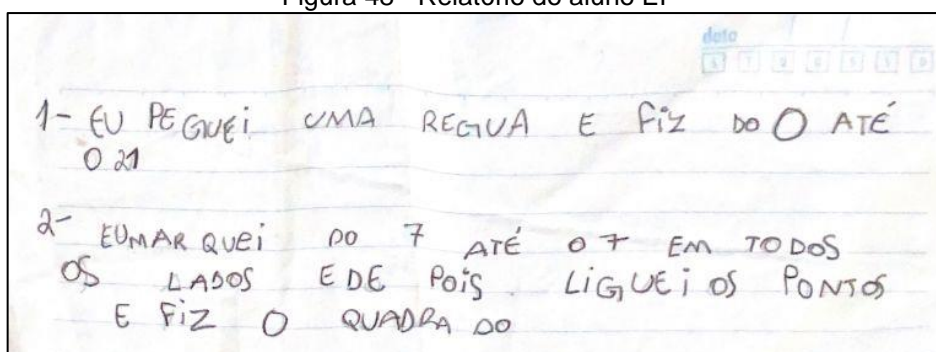 Figura 48 - Relatório do aluno EF
data
1- EU PEGUEi UMA REGUA E FiZ DO 0 ATÉ
O 21
2- EUMAR QUEi DO 7 ATÉ O 7 EM TODOS
OS LADOS EDE POiS LiGUEi OS PONTOS
E FiZ O QUADRA DO